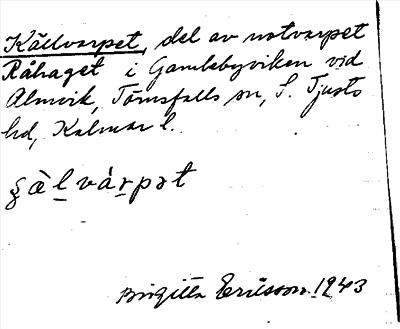 Källvarpet, del av notvarpet
Råhaget i Gamlebyviken vid
Almvik, Törnsfalls sn, S. Tjusts
hd, Kalmar l.
ʂὰl̲ várpət
Birgitta Ericsson 1943